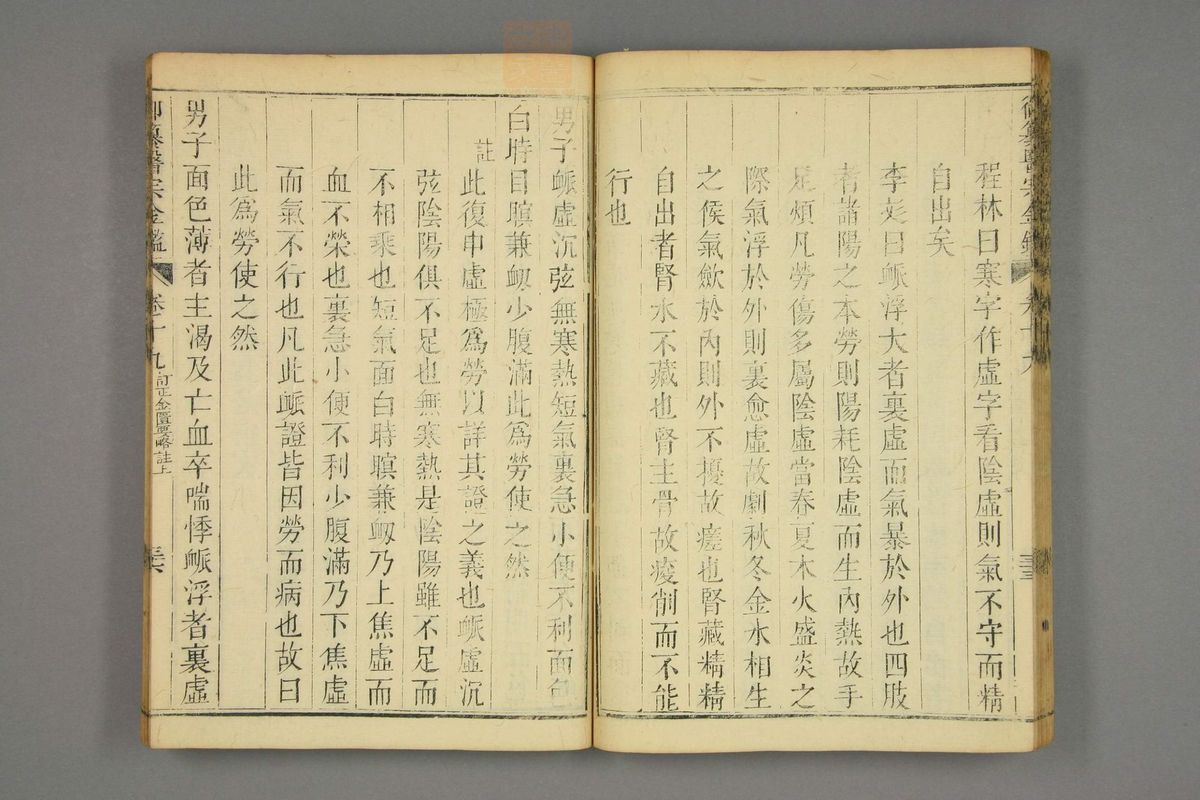 御纂醫宗金鑑
程林曰寒字作虛字看陰虛則氣不守而精
自出矣
李彣曰脈浮大者裏虛而氣暴於外也四肢
者諸陽之本勞則陽耗陰虛而生內熱故手
足煩凡勞傷多屬陰虛當春夏木火盛炎之
際氣浮於外則裏愈虛故劇秋冬金水相生
之候氣歛於內則外不擾故瘥也腎藏精精
自出者腎水不藏也腎主骨故痠削而不能
行也
男子脈虛沉弦無寒熱短氣裏急小便不利面色
白時目瞑兼衂少腹滿此爲勞使之然
註
此復申虛極爲勞以詳其證之義也脈虛沉
弦陰陽俱不足也無寒熱是陰陽雖不足而
不相乘也短氣面白時瞑兼衂乃上焦虛而
血不榮也裏急小便不利少腹滿乃下焦虛
而氣不行也凡此脈證皆因勞而病也故曰
此爲勞使之然
男子面色薄者主渴及亡血卒喘悸脈浮者裏虛
御纂醫宗金鑑
卷十九
訂正金匱要略註上